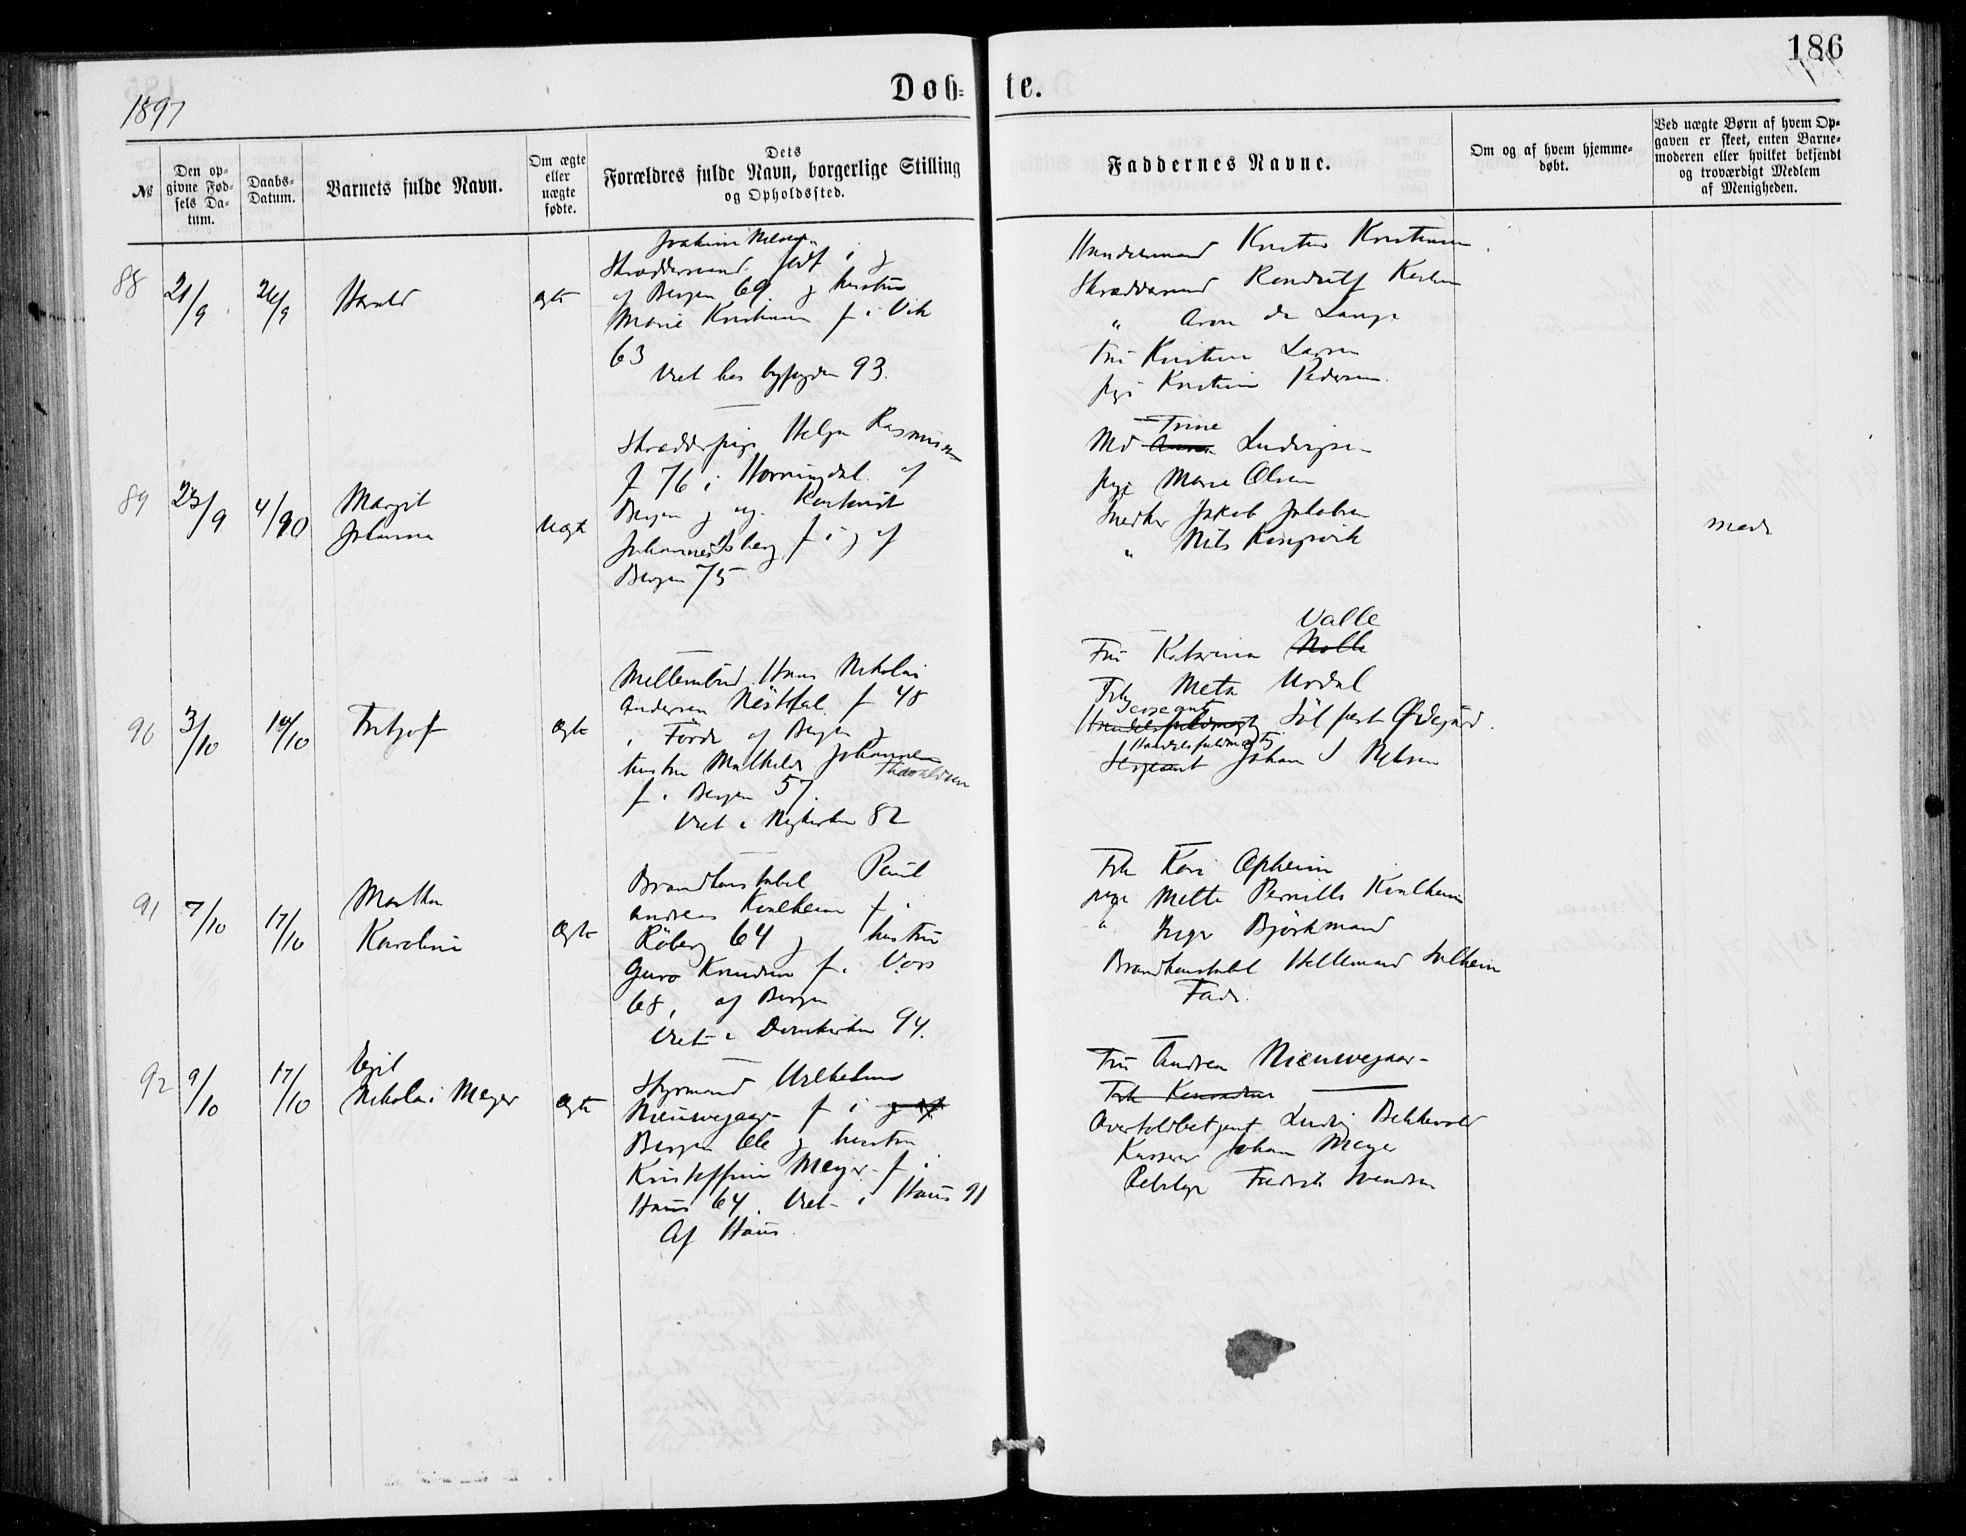 186
1897
Døb= te.
№
Den op-
givne Fød-
sels Da-
tum.
Daabs-
Datum.
Barnets fulde Navn.
Om ægte
eller
uægte
fødte.
Dets
Forældres fulde Navn, borgerlige Stilling
og Opholdssted.
Faddernes Navne.
Om og af hvem hjemme-
døbt.
Ved uægte Børn af hvem Op-
gaven er skeet, enten Barne-
moderen eller hvilket bekjendt
og troværdigt Medlem
af Menigheden.
88
21/9
26/9
Harald
ægte
Joakim Nilsen
Skræddersvend født i g
af Bergen 69 g hustru
Marie Kristiansen f i Vik
63
Viet hos byfogden 93.
Kristian Kristiansen
Skræddersvend Randulf
" Aron de Lange
Fru Kristine Larsen
pige Kristine Pedersen
89
23/9
4/10
Margit
Johanna
Uægte
Skrædderpige Helga Rasmussen
f 76 i Horningdal af
Bergen g ug.
Johannes f i g af
Bergen 75
Trine
Md Ludvigsen
pige Marie Olsen
Snedker Jakob Jakobsen
" Nils
mod
90
3/10
10/10
Fritjof
Ægte
Mellembud Hans Nikolai
Andersen f 48
i Førde af Bergen g
hustru Mathilde Johannesen
Thorvaldsen
f i Bergen 57.
Viet i Nykirken 82
Valle
Fru Katrina Nolle
Frk Meta
Sergeant
Handelsfuldmægtig Ødegård
Handelsfuldmægtig
Sergeant Johan
91
7/10
17/10
Martha
Karoline
Ægte
Brandkonstabel Paul
Andreas Kvalheim f i
64 g hustru
Guro Knudsen f. i Voss
68, af Bergen
Viet i Domkirken 94.
Frk Kari Opheim
pige Mette Pernille Kvalheim
" Inga Bjørkmand
Brandkonstabel Hellemand Solheim
Fadr.
92
9/10
17/10
Egil
Nikolai Meyer
Ægte
Styrmand Vilhelm
Nieuwejaar f i g af
Bergen g hustru
Kristoffine Meyer f i
Haus 64. Viet i Haus 91
Af Haus
Fru Andrea Nieuwejaar
Frk
Overtoldbetjent Ludvig Bekkevold
Kasserer Johan Meyer
Fredrik Svendsen